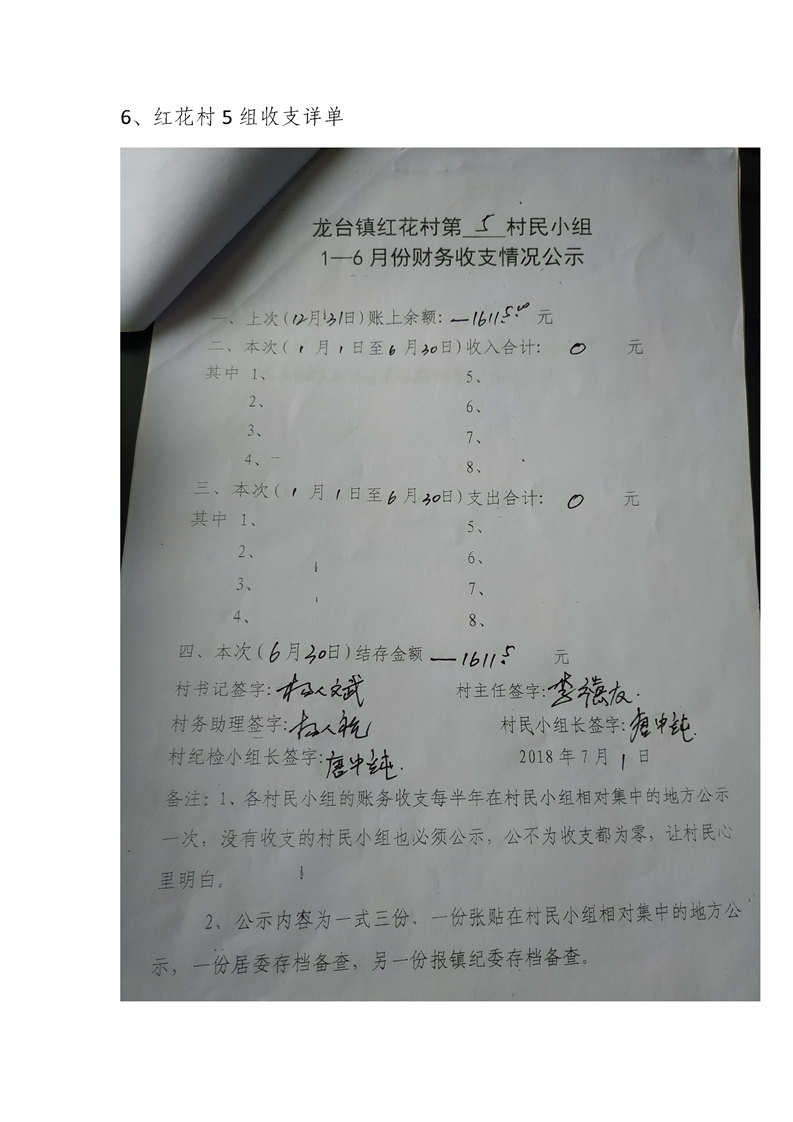 6、红花村 5 组收支详单
龙台镇红花村第 5 村民小组
1—6 月份财务收支情况公示
一、上次(12月31日)账上余额: —1611 元
二、本次( 1 月 1 日至 6 月 30 日)收入合计: 0 元
其中 1、 5、
2、 6、
3、 7、
4、 8、
三、本次( 1 月 1 日至 6 月 30 日)支出合计: 0 元
其中 1、 5、
2、 6、
3、 7、
4、 8、
四、本次( 6 月 30 日)结存金额 —1611 元
村书记签字: 村主任签字:
村务助理签字: 村民小组长签字:
村纪检小组长签字: 2018 年 7 月 1 日
备注: 1、各村民小组的账务收支每半年在村民小组相对集中的地方公示
一次，没有收支的村民小组也必须公示，公不为收支都为零，让村民心
里明白。
2、公示内容为一式三份、一份张贴在村民小组相对集中的地方公
示，一份居委存档备查，另一份报镇纪委存档备查。